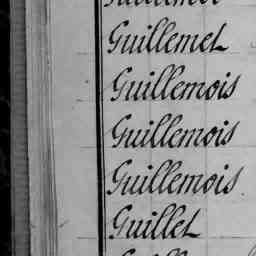 Guillemet
Guillemois
Guillemois
Guillemois
Guillet